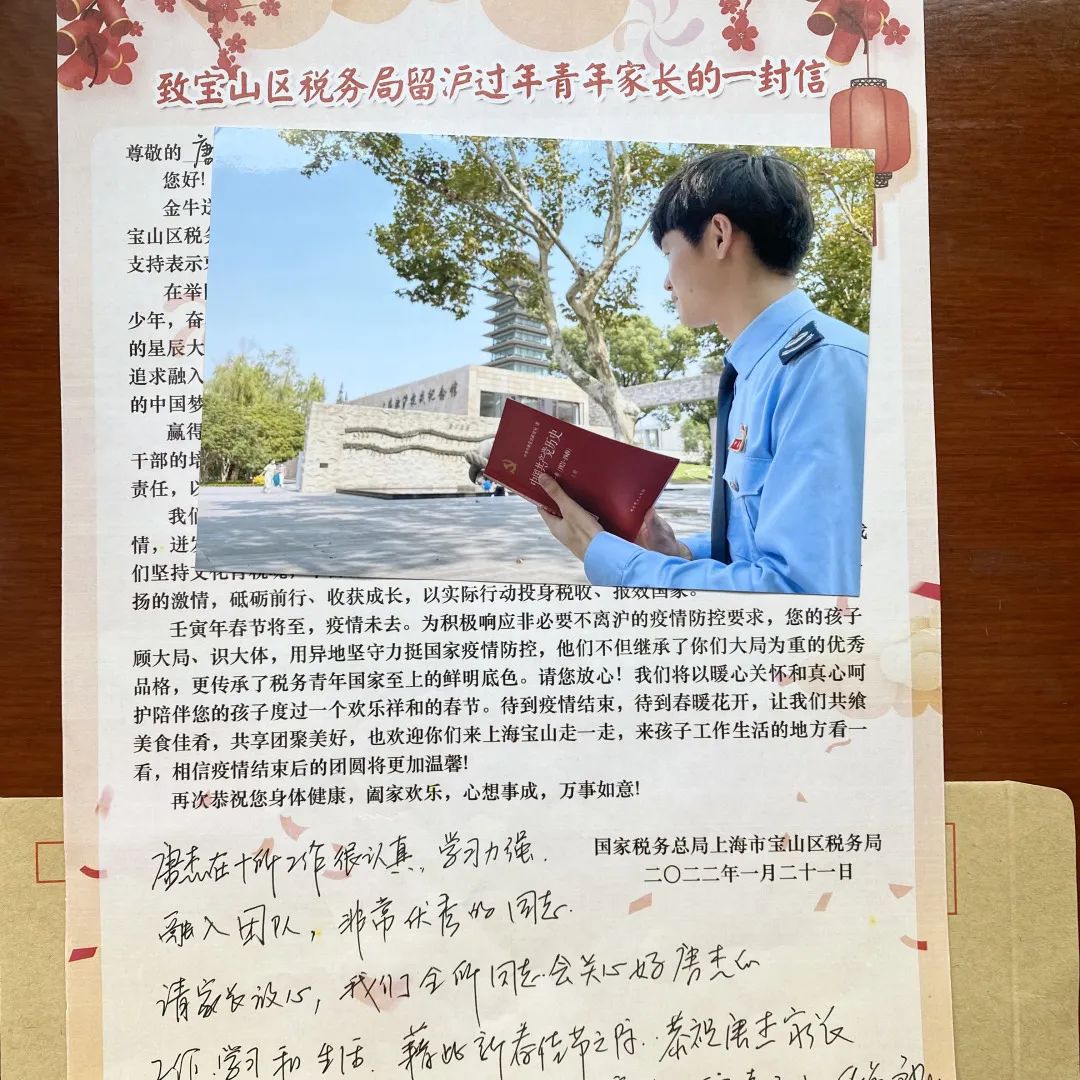 致宝山区税务局留沪过年青年家长的一封信
尊敬的 唐
您好!
金牛送
宝山区税务
支持表示
在举
少年，奋
的星辰大
追求融入
的中国梦
赢得
干部的培
责任，以
我们
情，迸发
们坚持
扬的激情，砥砺前行、收获成长，以实际行动投身税收、报效国家。
壬寅年春节将至，疫情未去。为积极响应非必要不离沪的疫情防控要求，您的孩子
顾大局、识大体，用异地坚守力挺国家疫情防控，他们不但继承了你们大局为重的优秀
品格，更传承了税务青年国家至上的鲜明底色。请您放心！我们将以暖心关怀和真心呵
护陪伴您的孩子度过一个欢乐祥和的春节。待到疫情结束，待到春暖花开，让我们共飨
美食佳肴，共享团聚美好，也欢迎你们来上海宝山走一走，来孩子工作生活的地方看一
看，相信疫情结束后的团圆将更加温馨!
再次恭祝您身体健康，阖家欢乐，心想事成，万事如意!
国家税务总局上海市宝山区税务局
二〇二二年一月二十一日
唐杰在十所工作很认真，学习力强.
融入团队，非常优秀的同志.
请家长放心，我们全所同志会关心好唐杰的
工作.学习和生活. 藉此新春佳节之际.恭祝唐杰家长
中国共产党历史